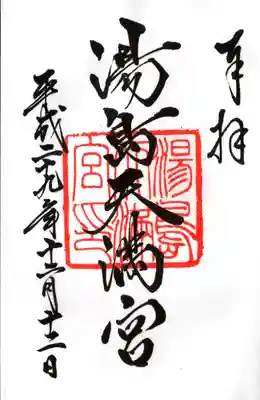 奉拝
湯島天満宮
平成二九年十二月十二日
湯島
天満
宮印